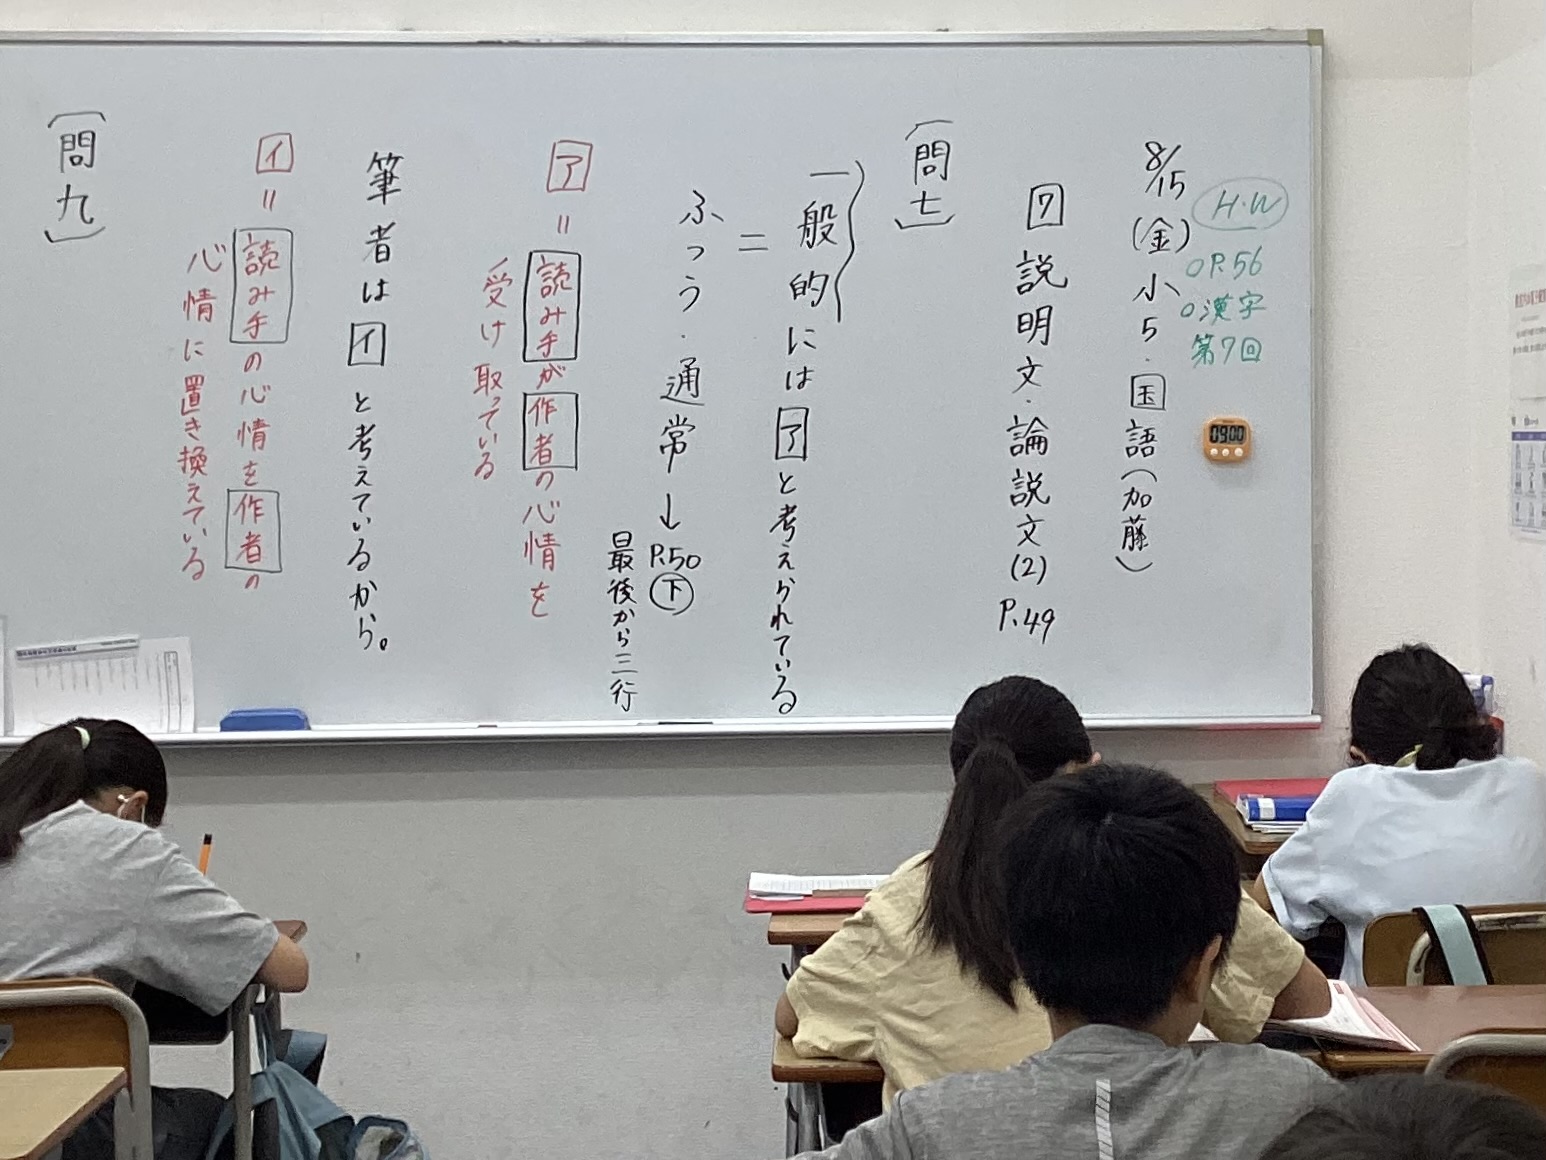 H.W
○P.56
○漢字
第7回
8/15(金)小5・国語(加藤)
7 説明文・論説文(2) P.49
〔問七〕
一般的にはアと考えられている
=
ふつう・通常→P.50下
最後から三行
ア=読み手が作者の心情を
受け取っている
筆者はイと考えているから。
イ=読み手の心情を作者の
心情に置き換えている
〔問九〕
09:00